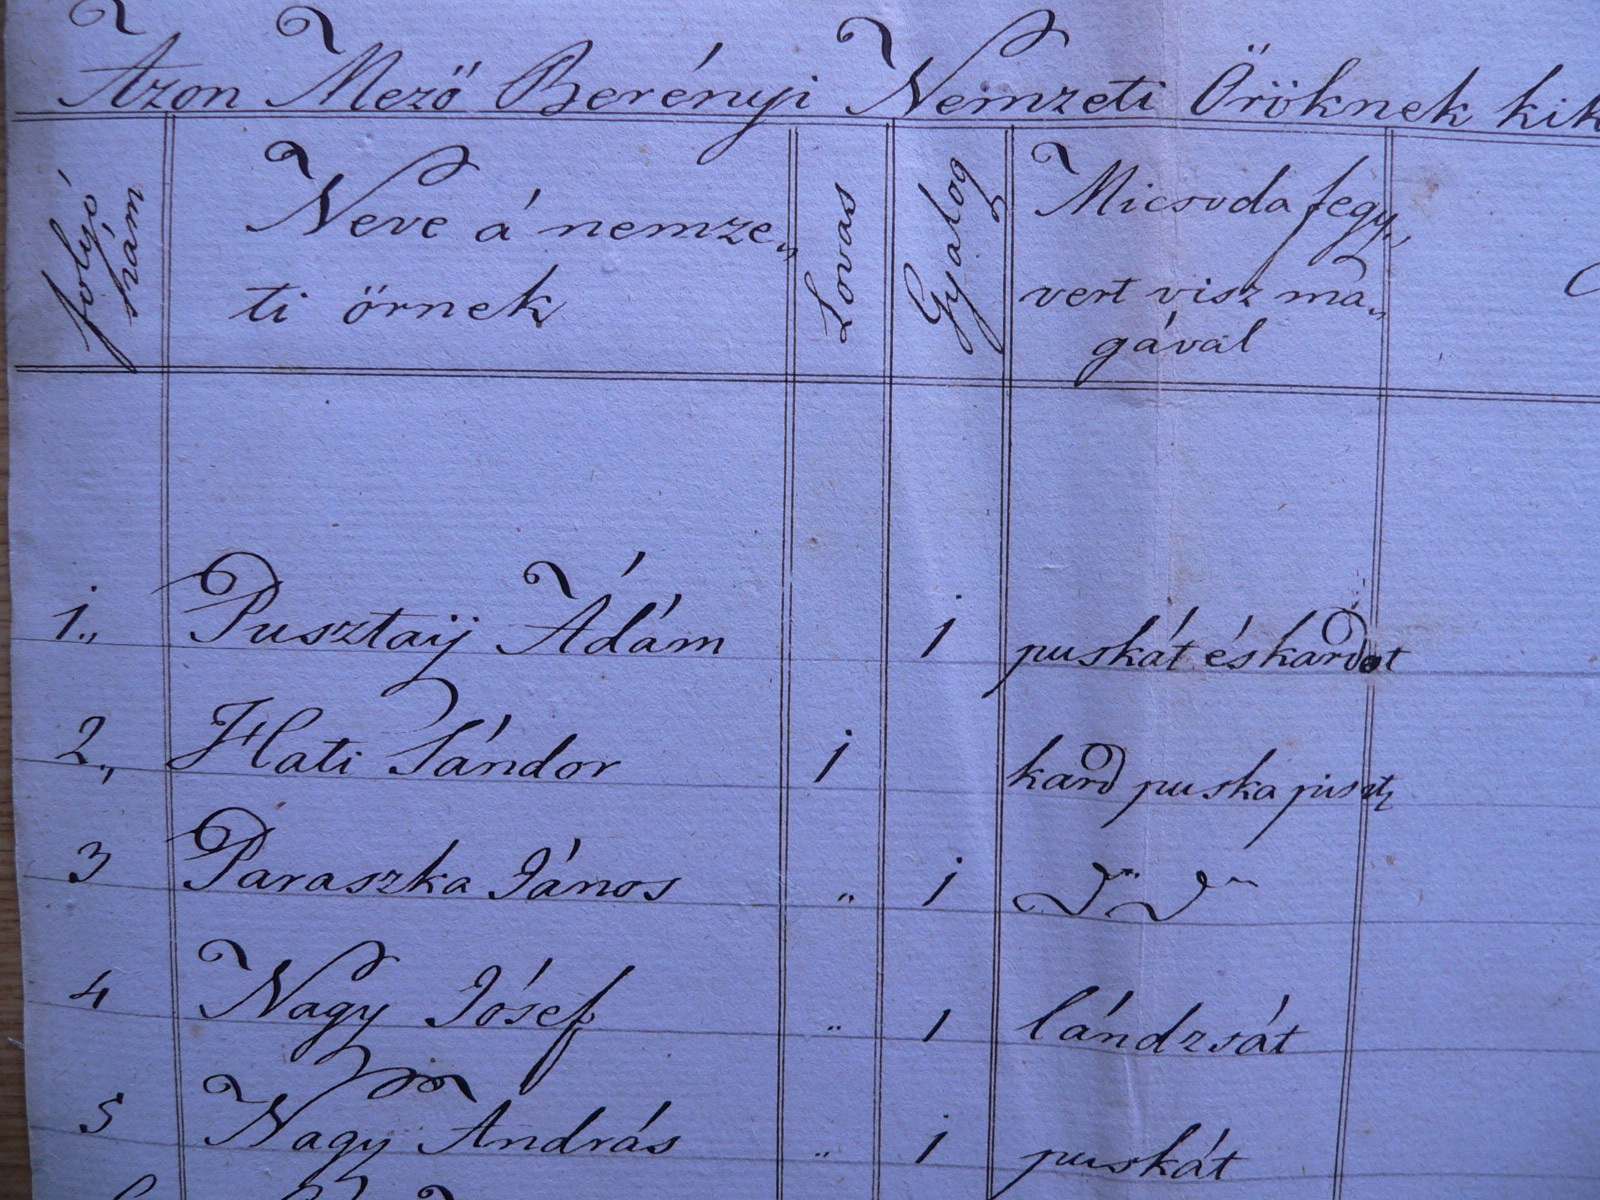 Azon Mező Berényi Nemzeti Őröknek kik
folyó szám
Neve á nemze„
ti őrnek
Lovas
Gyalog
Micsoda fegy„
vert visz ma„
gával
1„ Pusztaij Ádám 1 puskát és kardot
2„ Hati Sándor 1 kard puska piszt
3 Paraszka János „ 1
4 Nagy Jósef „ 1 lándzsát
5 Nagy András „ 1 puskát